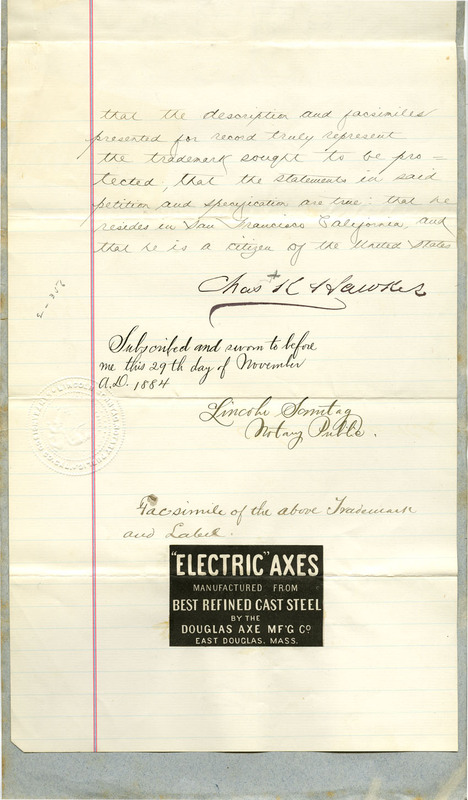 that the description and facsimiles
presented for record truly represent
the trademark sought to be pro-
tected, that the statements in said
petition and specification are true: that he
resides in San Francisco California, and
that he is a citizen of the United States
Chas K Hawkes
Subscribed and sworn to before
me this 29th day of November
A.D. 1884
Lincoln Sonntag
Notary Public.
Facsimile of the above Trademark
and Label.
"ELECTRIC" AXES
MANUFACTURED FROM
BEST REFINED CAST STEEL
BY THE
DOUGLAS AXE MF'G Co
EAST DOUGLAS. MASS.